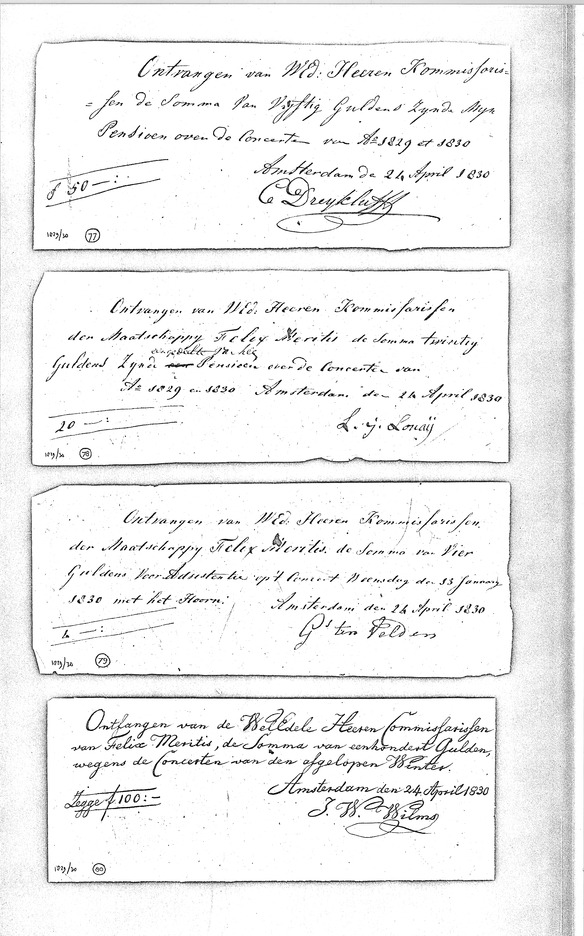 Ontvangen van WEd: Heeren Kommissaris=
=sen de Somma van Vyftig Guldens Zynde Myn
Pensioen over de Concerten van Ao 1829 et 1830
Amsterdam de 24 April 1830
f 50 —:
C Dreykluft
1829/30 77
Ontvangen van WEd: Heeren Kommissarissen
der Maatschappy Felix Meritis de Somma twintig
Guldens Zynde Pensioen over de Concerten van
Ao 1829 en 1830 Amsterdam den 24 April 1830
20 —:
L. J. Louaÿ
1829/30 78
Ontvangen van WEd: Heeren Kommissarissen
der Maatschappy Felix Meritis de Somma van Vier
Guldens Voor Adsistentie op't Concert Woensdag den 13 January
1830 met het Hoorn: Amsterdam den 24 April 1830
4 —:
Gs ten Velden
1829/30 79
Ontfangen van de WelEdele Heeren Commissarissen
van Felix Meritis, de Somma van eenhondert Gulden,
wegens de Concerten van den afgelopen Winter.
Amsterdam den 24 April 1830
Zegge f 100:-
J. W. Wilms
1829/30 80